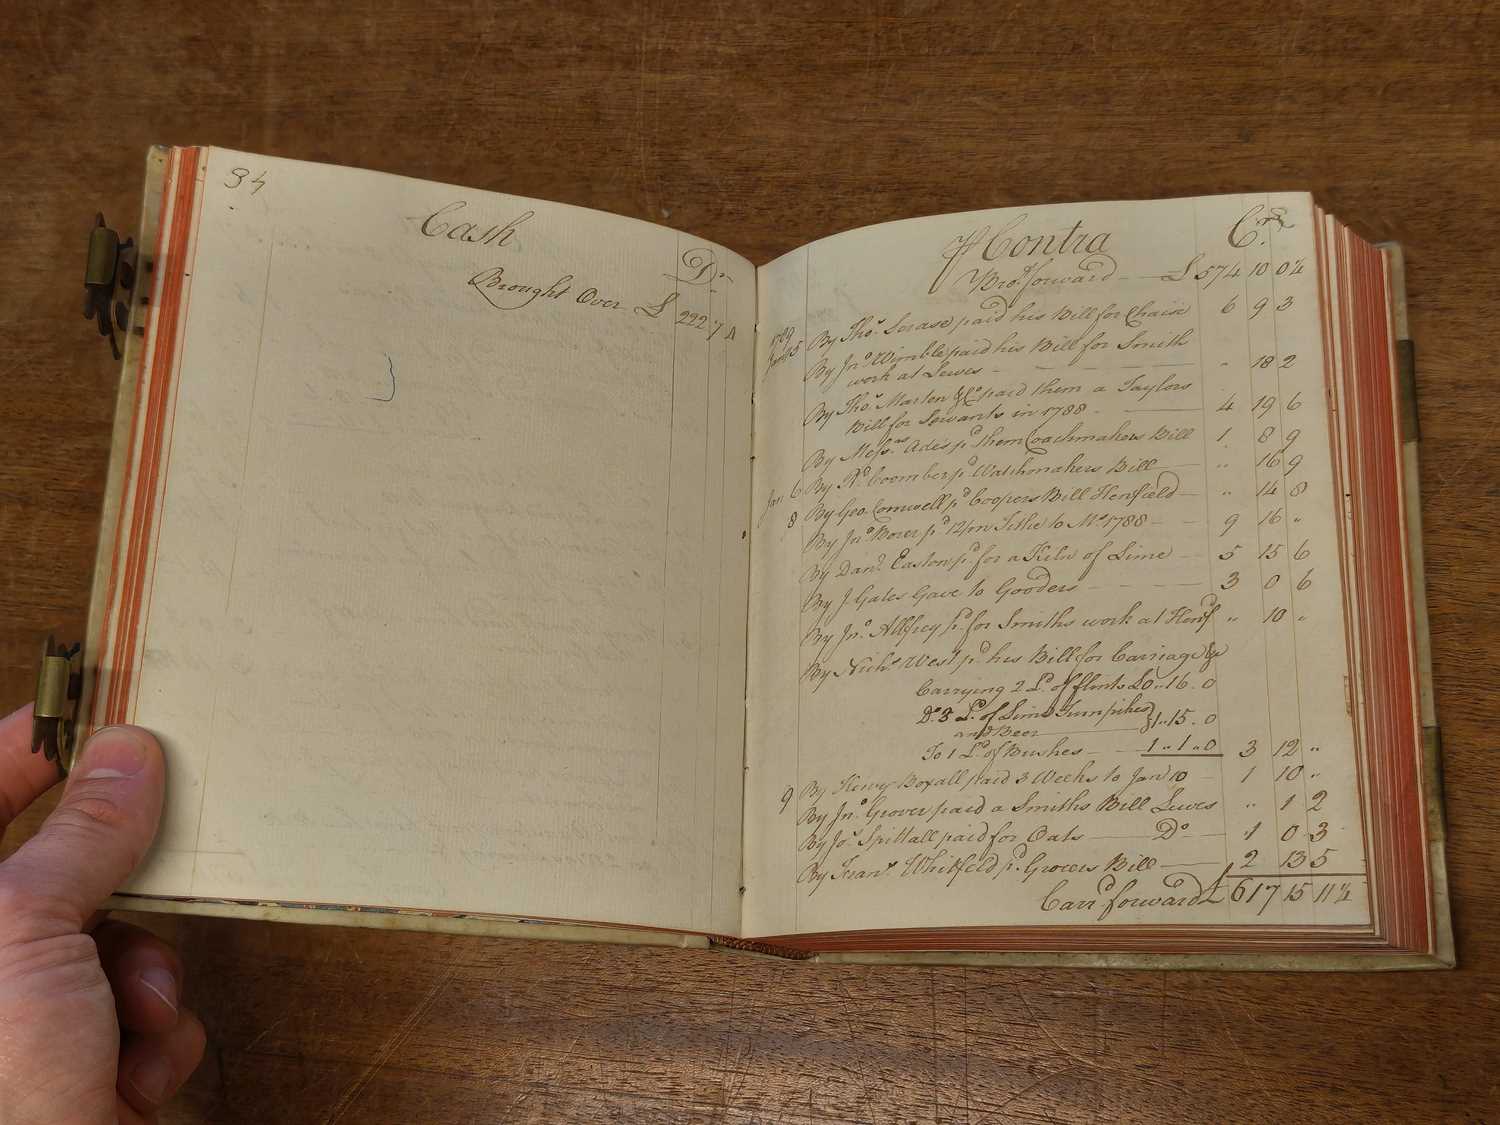 34
Cash
Dr
Brought Over £ 222 7
P Contra Cr
Brot. forward £ 574 10 0¼
1789
Jan 5 By Thos. Scrase paid his Bill for Chaise 6 9 3
By Jno. Wymble paid his Bill for Smith
work at Lewes " 18 2
By Thos. Marten & Co. paid them a Taylors
Bill for Servants in 1788 4 19 6
By Messrs. Ades pd. them Coachmakers Bill 1 8 9
By Rd. Coomber pd. Watchmakers Bill " 16 9
Jan 6 By Geo. Cornwell pd. Coopers Bill Henfield " 14 8
8 By Jno. Borer pd. 12/m Tithe to Ms. 1788 9 16 "
By Danl. Easton pd. for a Kiln of Lime 5 15 6
By J. Gates Gave to Gooders 3 0 6
By Jno. Allfrey pd. for Smiths work at Henfd " 10 "
By Nichs. West pd. his Bill for Carriage &c
Carrying 2 Ld. of flints £0 " 16 . 0
Do. 3 Ld. of Lime Turnpikes
and Beer } 1 " 15 . 0
To 1 Ld. of Bushes 1 " 1 " 0 3 12 "
9 By Henry Boxall paid 3 Weeks to Jany 10 1 10 "
By Jno. Grover paid a Smiths Bill Lewes " 1 2
By Jos. Spittall paid for Oats Do 1 0 3
By Frans. Whitfeld pd. Grocers Bill 2 13 5
Carrd. forward £ 617 15 11¼